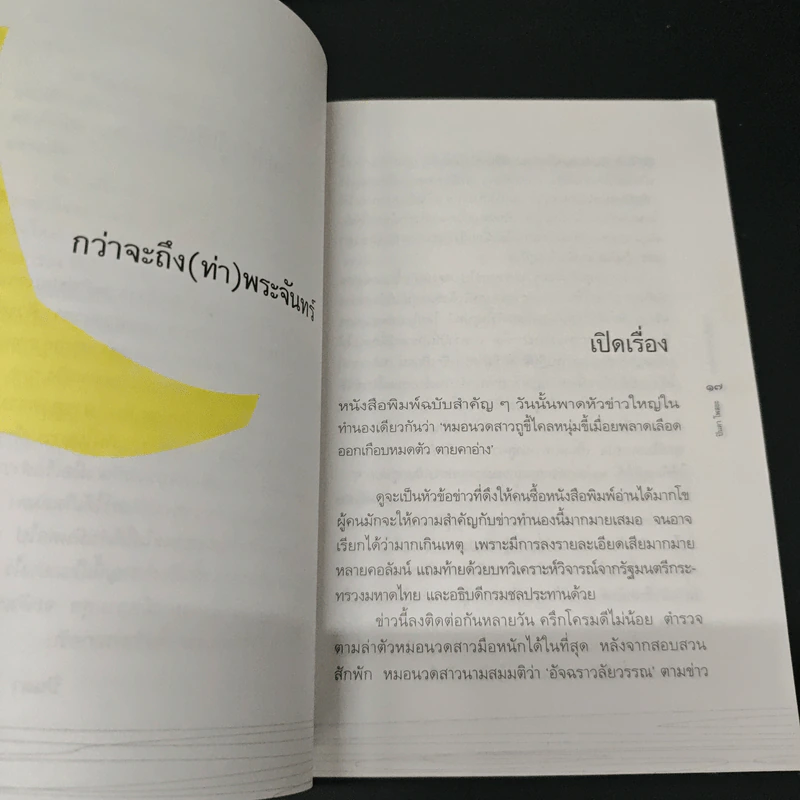 กว่าจะถึง(ท่า)พระจันทร์
เปิดเรื่อง
๑๗
หนังสือพิมพ์ฉบับสำคัญ ๆ วันนั้นพาดหัวข่าวใหญ่ใน
ทำนองเดียวกันว่า 'หมอนวดสาวถูขี้ไคลหนุ่มขี้เมื่อยพลาดเลือด
ออกเกือบหมดตัว ตายคาอ่าง'
ดูจะเป็นหัวข้อข่าวที่ดึงให้คนซื้อหนังสือพิมพ์อ่านได้มากโข
ผู้คนมักจะให้ความสำคัญกับข่าวทำนองนี้มากมายเสมอ จนอาจ
เรียกได้ว่ามากเกินเหตุ เพราะมีการลงรายละเอียดเสียมากมาย
หลายคอลัมน์ แถมท้ายด้วยบทวิเคราะห์วิจารณ์จากรัฐมนตรีกระ-
ทรวงมหาดไทย และอธิบดีกรมชลประทานด้วย
ข่าวนี้ลงติดต่อกันหลายวัน ครึกโครมดีไม่น้อย ตำรวจ
ตามล่าตัวหมอนวดสาวมือหนักได้ในที่สุด หลังจากสอบสวน
สักพัก หมอนวดสาวนามสมมติว่า 'อัจฉราวลัยวรรณ' ตามข่าว